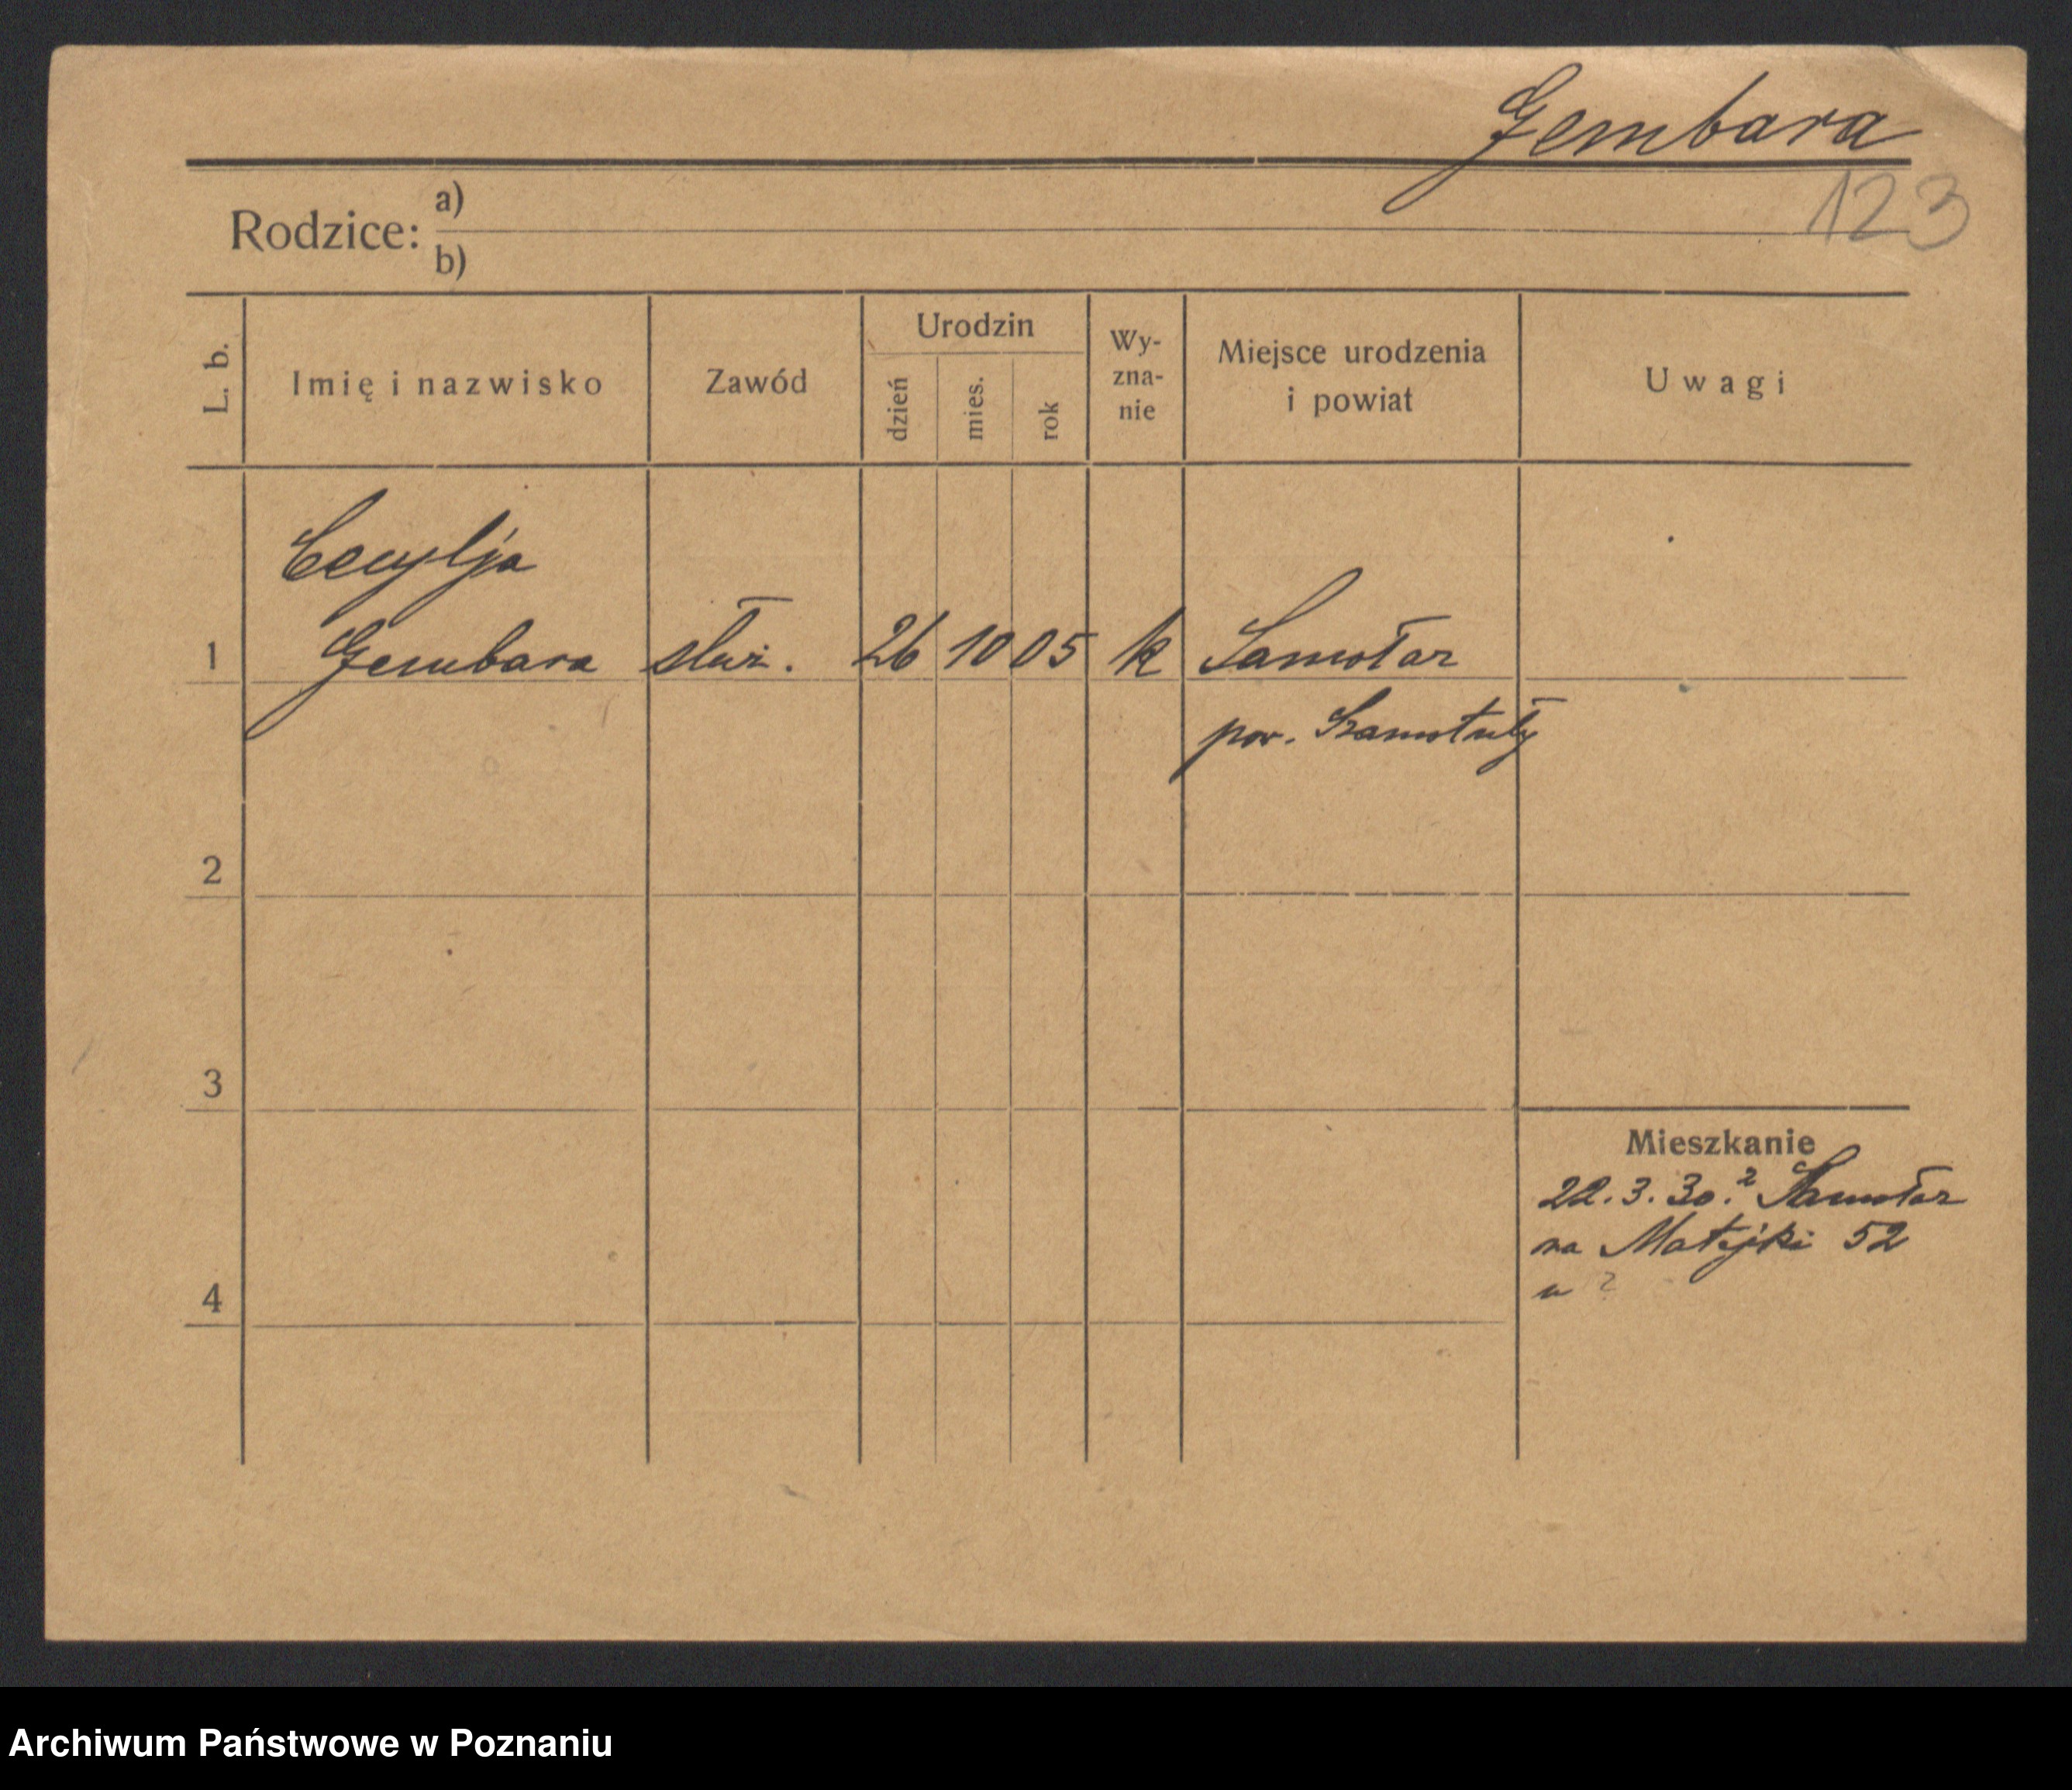 Gembara
123
Rodzice: a)
b)
L. b.
Imię i nazwisko
Zawód
Urodzin
dzień
mies.
rok
Wy-
zna-
nie
Miejsce urodzenia
i powiat
Uwagi
Cecylja
1 Gembara służ. 26 10 05 k Samołar
pow. Szamotuły
2
3
Mieszkanie
22.3.30. z Samołar
na Matejki 52
u ?
4
Archiwum Państwowe w Poznaniu